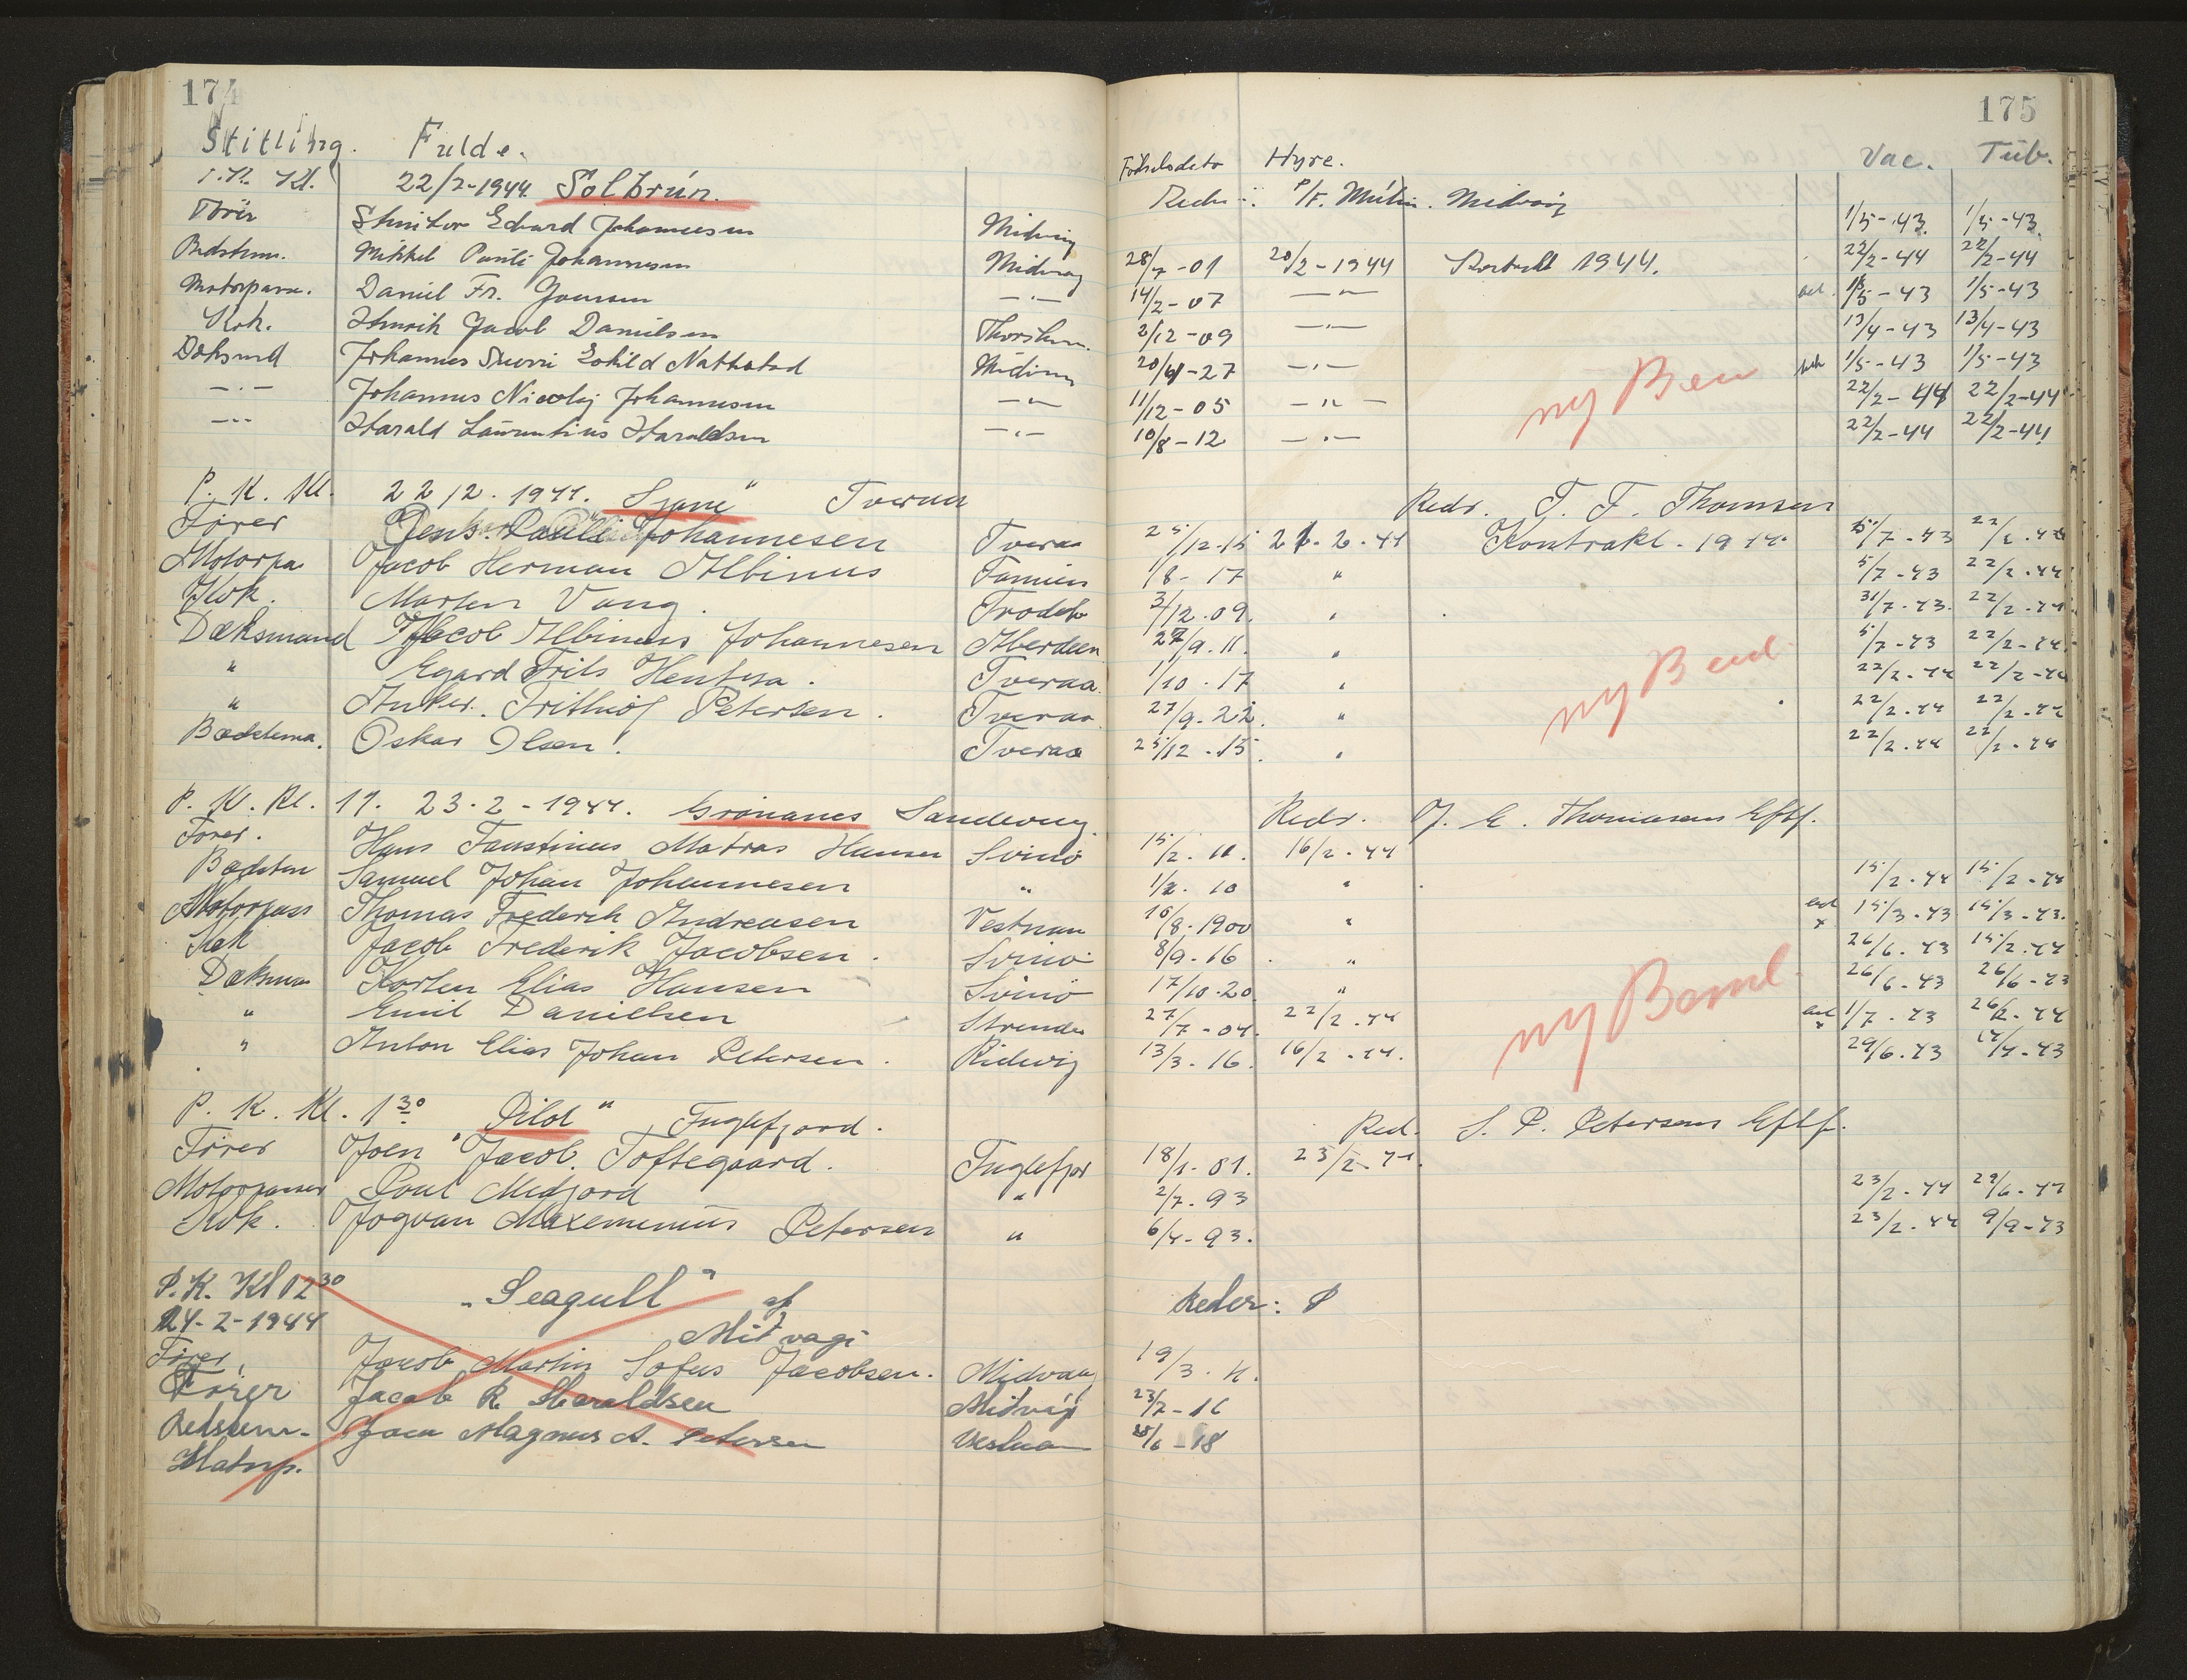 174 175
Stilling. Fulde. Födselsdato Hyre. Vac. Tub.
P.K. Kl. 22/2-1944 Solbrún. Reder: P/F. Midvág
Edvard Johannesen Midvåg 1/5-43 1/5-43
Bedstem. Mikkel Pauli Johannesen Midvag 28/7-01 20/2-1944 Kontrakt 1944. 22/2-44 22/2-44
Motorpass. Daniel Fr. Joensen -"- 14/2-07 -"- 1/5-43 1/5-43
Kok. Henrik Jacob Danielsen Thorshvn. 2/12-09 -"- 13/4-43 13/4-43
Dæksmd Johannes Eskild Midvaag -27 -"- 1/5-43 1/5-43
-"- Johannes Nicolaj Johannesen -"- 11/12-05 -"- 22/2-44 22/2-44
-"- Harald Laurentius Haraldsen -"- 10/8-12 -"- 22/2-44 22/2-44
ny Bem
P. K. Kl. 22/2. 1944. Tveraa Redr. T. F. Thomsen
Förer Jens. Pauli Johannesen Tveraa 25/12-15 2-44 Kontrakt. 1944. 5/7-43
Motorpa Jacob Herman Albinus Famien 1/8-17 " 5/7-43 22/2-44
Kok. Morten Vang. Frodebo 3/12.09. " 31/7-43. 22/2-44
Dæksmand Jacob Albinus Johannesen Aberdeen 27/9.11. " 5/7-43 22/2-44
" Egard Frits Hentza. Tveraa. 1/10-17 " 22/2-44 22/2-44
" Anker. Frithiof Petersen. Tveraa 27/9-22. " 22/2-44 22/2-44
Bedstema. Oskar Olsen. Tveraa 25/12-15. " 22/2-44 22/2-44
ny Bem
P. K. Kl. 17. 23-2-1944. Grönanes Sandevaag. Redr. J. E. Thomsens Eftf.
Förer. Hans Faustinus Matras Hansen Svinö 15/2. 11. 16/2-44
Bedstem Samuel Johan Johannesen " 10 " 15/2-44 15/2-44
Motorpass Thomas Frederik Andreasen Vestman 16/8-1900 " 15/3-43 15/3-43.
Kok Jacob Frederik Jacobsen. Svinö 8/9-16 " 26/6-43 15/2-44
Dæksma Karten Elias Hansen Svinö 17/10-20 " 26/6-43 26/6-43
" Emil Danielsen Strendr 27/7-04. 22/2-44 1/7-43 26/2-44
" Anton Elias Johan Petersen. Ridevig 13/3-16. 16/2-44. 29/6-43
ny Bemd
P. K. Kl. 1 30 Pilot" Fuglefjord. Red. S. P. Petersens Eftf.
Förer Joen Jacob. Toftegaard. Fuglefjor 18/1-01. 23/2-44.
Motorpasser Poul Midjord " 2/7-93 23/2-44
Kok. Jogvan Maxeminius Petersen " 6/4-93. 23/2-44 9/9-43
P.K. Kl 12 30 „Seagull" af Reder: P
24-2-1944 Mitvagi
Förer, Jacob Martin Sofus Jacobsen. Midvaag 19/3-11.
Förer Jacob R Haraldsen Mitvág 23/7-16
Bedstem. Joen Magnus A. Petersen Vestman -18
Motorp.